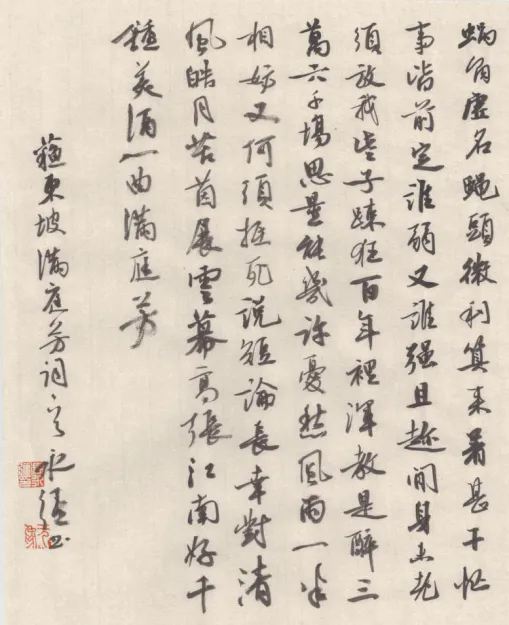 蝸角虛名蝇頭微利算来著甚干忙
事皆前定誰弱又誰强且趂閒身未老
須放我些子疎狂百年裡渾教是醉三
萬六千場思量能幾許憂愁風雨一半
相妨又何須抵死說短論長幸對清
風皓月苔茵展雲幕高張江南好千
鍾美酒一曲滿庭芳
蘇東坡滿庭芳詞 永 书